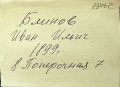 Блинов
Иван Ильич
1899г
8 Поперочная 7